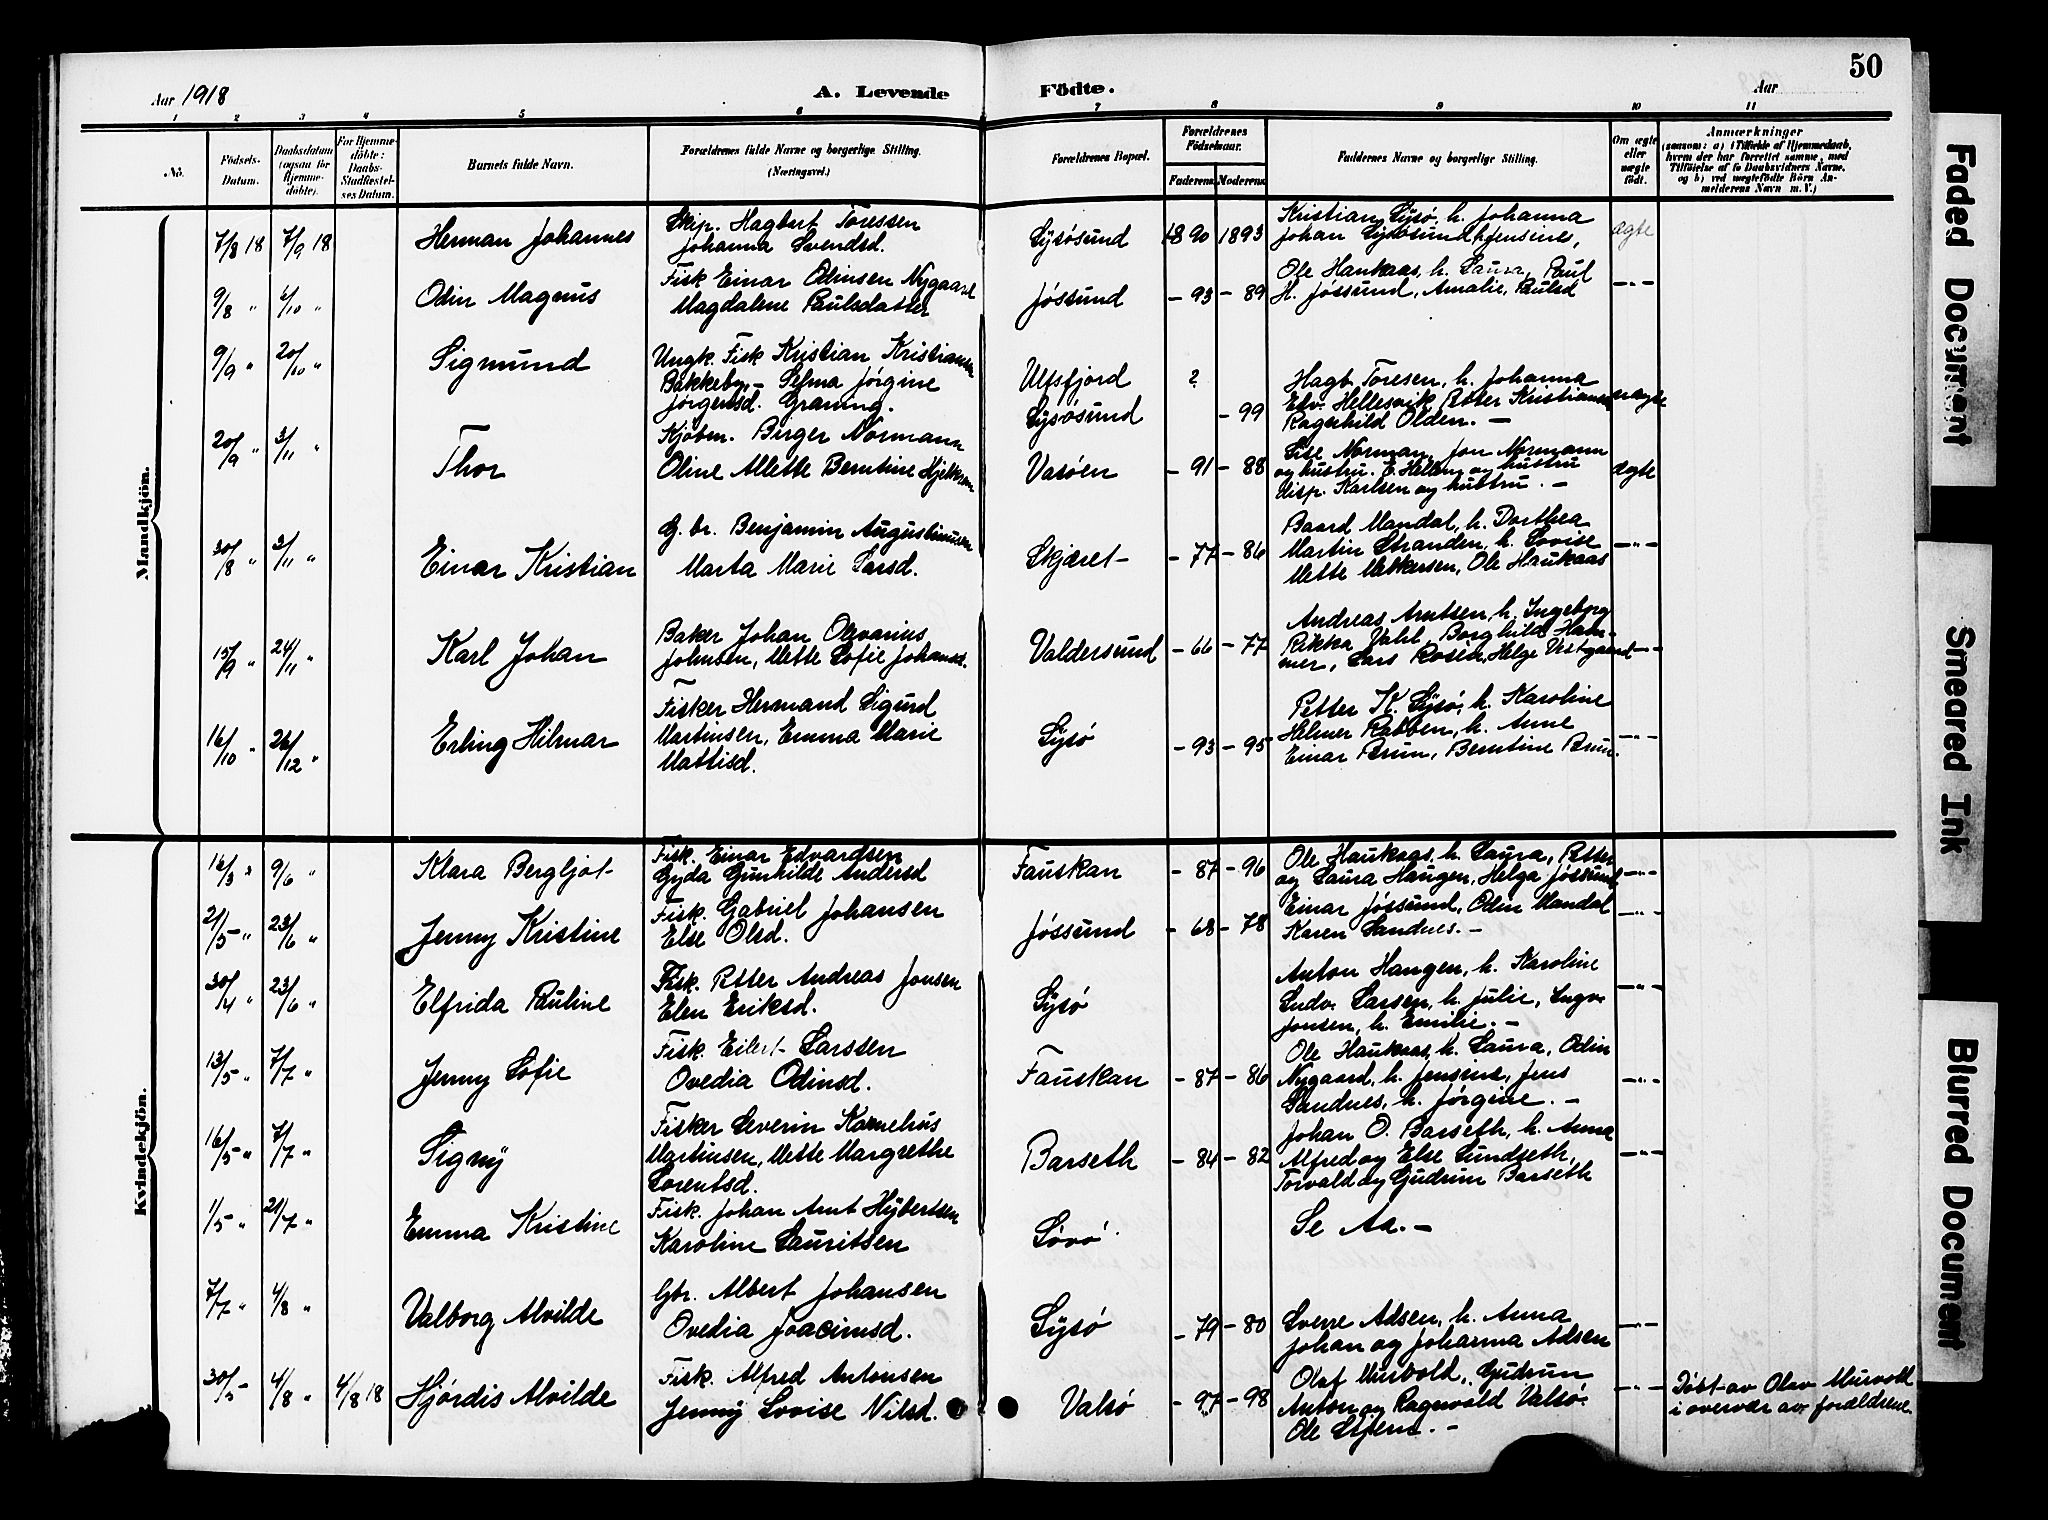 50
Aar 1918
A. Levende Födte.
Aar
1 2 3 4 5 6 7 8 9 10 11
No.
Födsels-Datum.
Daabsdatum (ogsaa for Hjemme-döbte).
For Hjemme-döbte: Daabs-Stadfæstel-ses Datum.
Barnets fulde Navn.
Forældrenes fulde Navne og borgerlige Stilling.
(Næringsvei.)
Forældrenes Bopæl.
Forældrenes Födselsaar.
Faderens Moderens
Faddernes Navne og borgerlige Stilling.
Om ægte eller uægte födt.
Anmærkninger
(saasom: a) i Tilfælde af Hjemmedaab,
hvem der har forrettet samme, med
Tilföielse af to Daabsvidners Navne,
og b) ved uægtefödte Börn An-
melderens Navn m. V.)
Mandkjön.
7/8 18 7/9 18 Herman Johannes
Skip. Hagbart Toressen
Johanna Svendsd.
Lysøsund 1890 1893
Kristian Lysø, h. Johanna
Johan Lysøsund, h Jensine,
ægte
9/8 " 6/10 " Odin Magnus
Fisk Einar Odinsen Nygaard
Magdalene Paulsdatter
Jøssund - 93 - 89
Ole Haukaas, h. Laura, Paul
H. Jøssund, Amalie, Paulsd
—"—
9/9 " 20/10 " Sigmund
Ungk. Fisk Kristian Kristiansen
Bakkeby, - Selma Jørgine
Jørgensd. Graning.
Ulfsfjord ?
Lysøsund - 99
Hagb. Toresen, h. Johanna
Edv. Hellesvik Petter Kristiansen
Ragnhild Olden. —
uægte
20/9 " 3/11 " Thor
Kjøbm. Birger Normann
Oline Alette Berntine Hjelkrem
Vasøen - 91 - 88
Lise Norman, Jon Normann
og hustru. E. Hellem og hustru
disp. Karlsen og hustru. —
ægte
30/8 " 3/11 " Einar Kristian
G. br. Benjamin Augustinusen
Marta Marie Larsd.
Skjæret - 77 - 86
Baard Mandal, h. Dorthea
Martin Stranden, h. Lovise
Mette Mikkersen, Ole Haukaas
—"—
15/9 " 24/11 " Karl Johan
Baker Johan Olevarius
Johnsen, Mette Sofie Johansd.
Valdersund - 66 - 77
Andreas Arntsen, h. Ingeborg
Rikka Vahl, Borghild Ham-
mer, Lars Rosen, Helge Vestgaard
—"—
16/10 " 26/12 " Erling Hilmar
Fisker Hermand Sigurd
Martinsen, Emma Marie
Mattisd.
Lysø - 93 - 95
Petter K. Lysø, h. Karoline
Helmer Rabben, h. Anne
Einar Brun, Berntine Brun.
—"—
Kvindekjön.
16/3 " 9/6 " Klara Bergljot
Fisk. Einar Edvardsen
Gyda Gunhilde Andersd
Fauskan - 87 - 96
Ole Haukaas, h. Laura, Petter
og Laura Haugen, Helga Jøssund
—"—
21/5 - " 23/6 " Jenny Kristine
Fisk. Gabriel Johansen
Else Olsd.
Jøssund - 68 - 78
Einar Jøssund, Odin Mandal
Karen Sandnes. —
—"—
30/4 " 23/6 " Elfrida Pauline
Fisk. Petter Andreas Jonsen
Elen Eriksd.
Lysø
Anton Haugen, h. Karoline
Ludv. Larsen, h. Julie, Ingv.
Jonsen, h. Emilie. —
—"—
13/5 " 7/7 " Jenny Sofie
Fisk. Eilert Larssen
Ovedia Odinsd.
Fauskan - 87 - 86
Ole Haukaas, h. Laura, Odin
Nygaard, h. Jensine, Jens
Sandnes, h. Jørgine. —
—"—
16/5 " 7/7 " Signy
Fisker Severin Kornelius
Martinsen, Mette Margrethe
Lorentsd.
Barseth - 84 - 82
Johan O. Barseth, h. Anna
Alfred og Else Sundseth,
Torvald og Gudrun Barseth
—"—
1/5 " 21/7 " Emma Kristine
Fisk. Johan Arnt Hybertsen
Karoline Lauritsen
Søvø
Se Aa. —
7/7 " 4/8 " Valborg Alvilde
Gbr. Albert Johansen
Ovedia Joacimsd.
Lysø - 79 - 80
Sverre Adsen, h. Anna
Johan og Johanna Adsen
—"—
4/8 " 4/8 18 Hjørdis Alvilde
Fisk. Alfred Antonsen
Jenny Lovise Nilsd.
Valsø - 97 - 98
Olaf Murvold, Gudrun
Anton og Ragnvald Valsø
Ole Stjern. —
—"—
Døbt av Olav Murvold
i overvær av forældrene.
Faded Document
Smeared Ink
Blurred Document